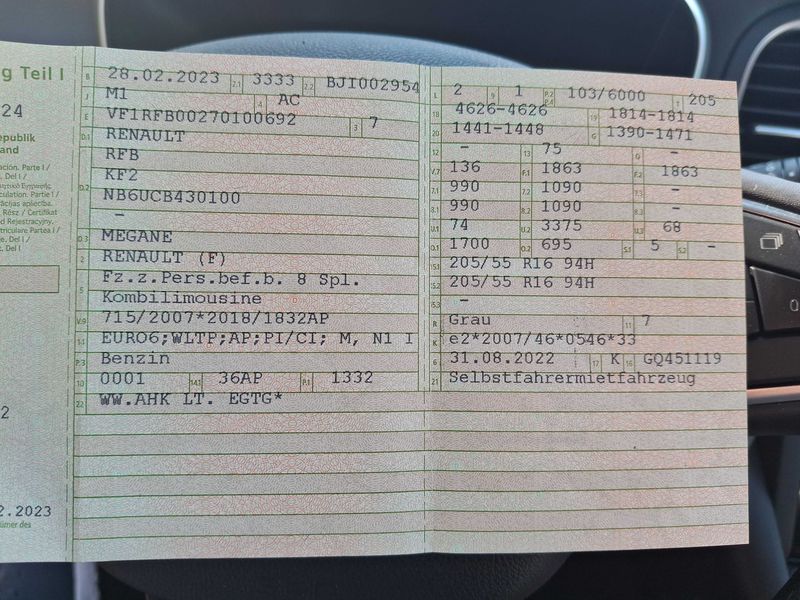 g Teil I
24
epublik
and
B 28.02.2023 2.1 3333 2.2 BJI002954
J M1 4 AC
E VF1RFB00270100692 3 7
D.1 RENAULT
RFB
D.2 KF2
NB6UCB430100
–
D.3 MEGANE
2 RENAULT (F)
5 Fz.z.Pers.bef.b. 8 Spl.
Kombilimousine
V.9 715/2007*2018/1832AP
14 EURO6;WLTP;AP;PI/CI; M, N1 I
P.3 Benzin
10 0001 14.1 36AP P.1 1332
22 WW.AHK LT. EGTG*
L 2 9 1 P.2 P.4 103/6000 T 205
18 4626-4626 19 1814-1814
20 1441-1448 G 1390-1471
12 – 13 75 Q –
V.7 136 F.1 1863 F.2 1863
7.1 990 7.2 1090 7.3 –
8.1 990 8.2 1090 8.3 –
U.1 74 U.2 3375 U.3 68
O.1 1700 O.2 695 S.1 5 S.2 –
15.1 205/55 R16 94H
15.2 205/55 R16 94H
15.3 –
R Grau 11 7
K e2*2007/46*0546*33
6 31.08.2022 17 K 16 GQ451119
21 Selbstfahrermietfahrzeug
2
2.2023